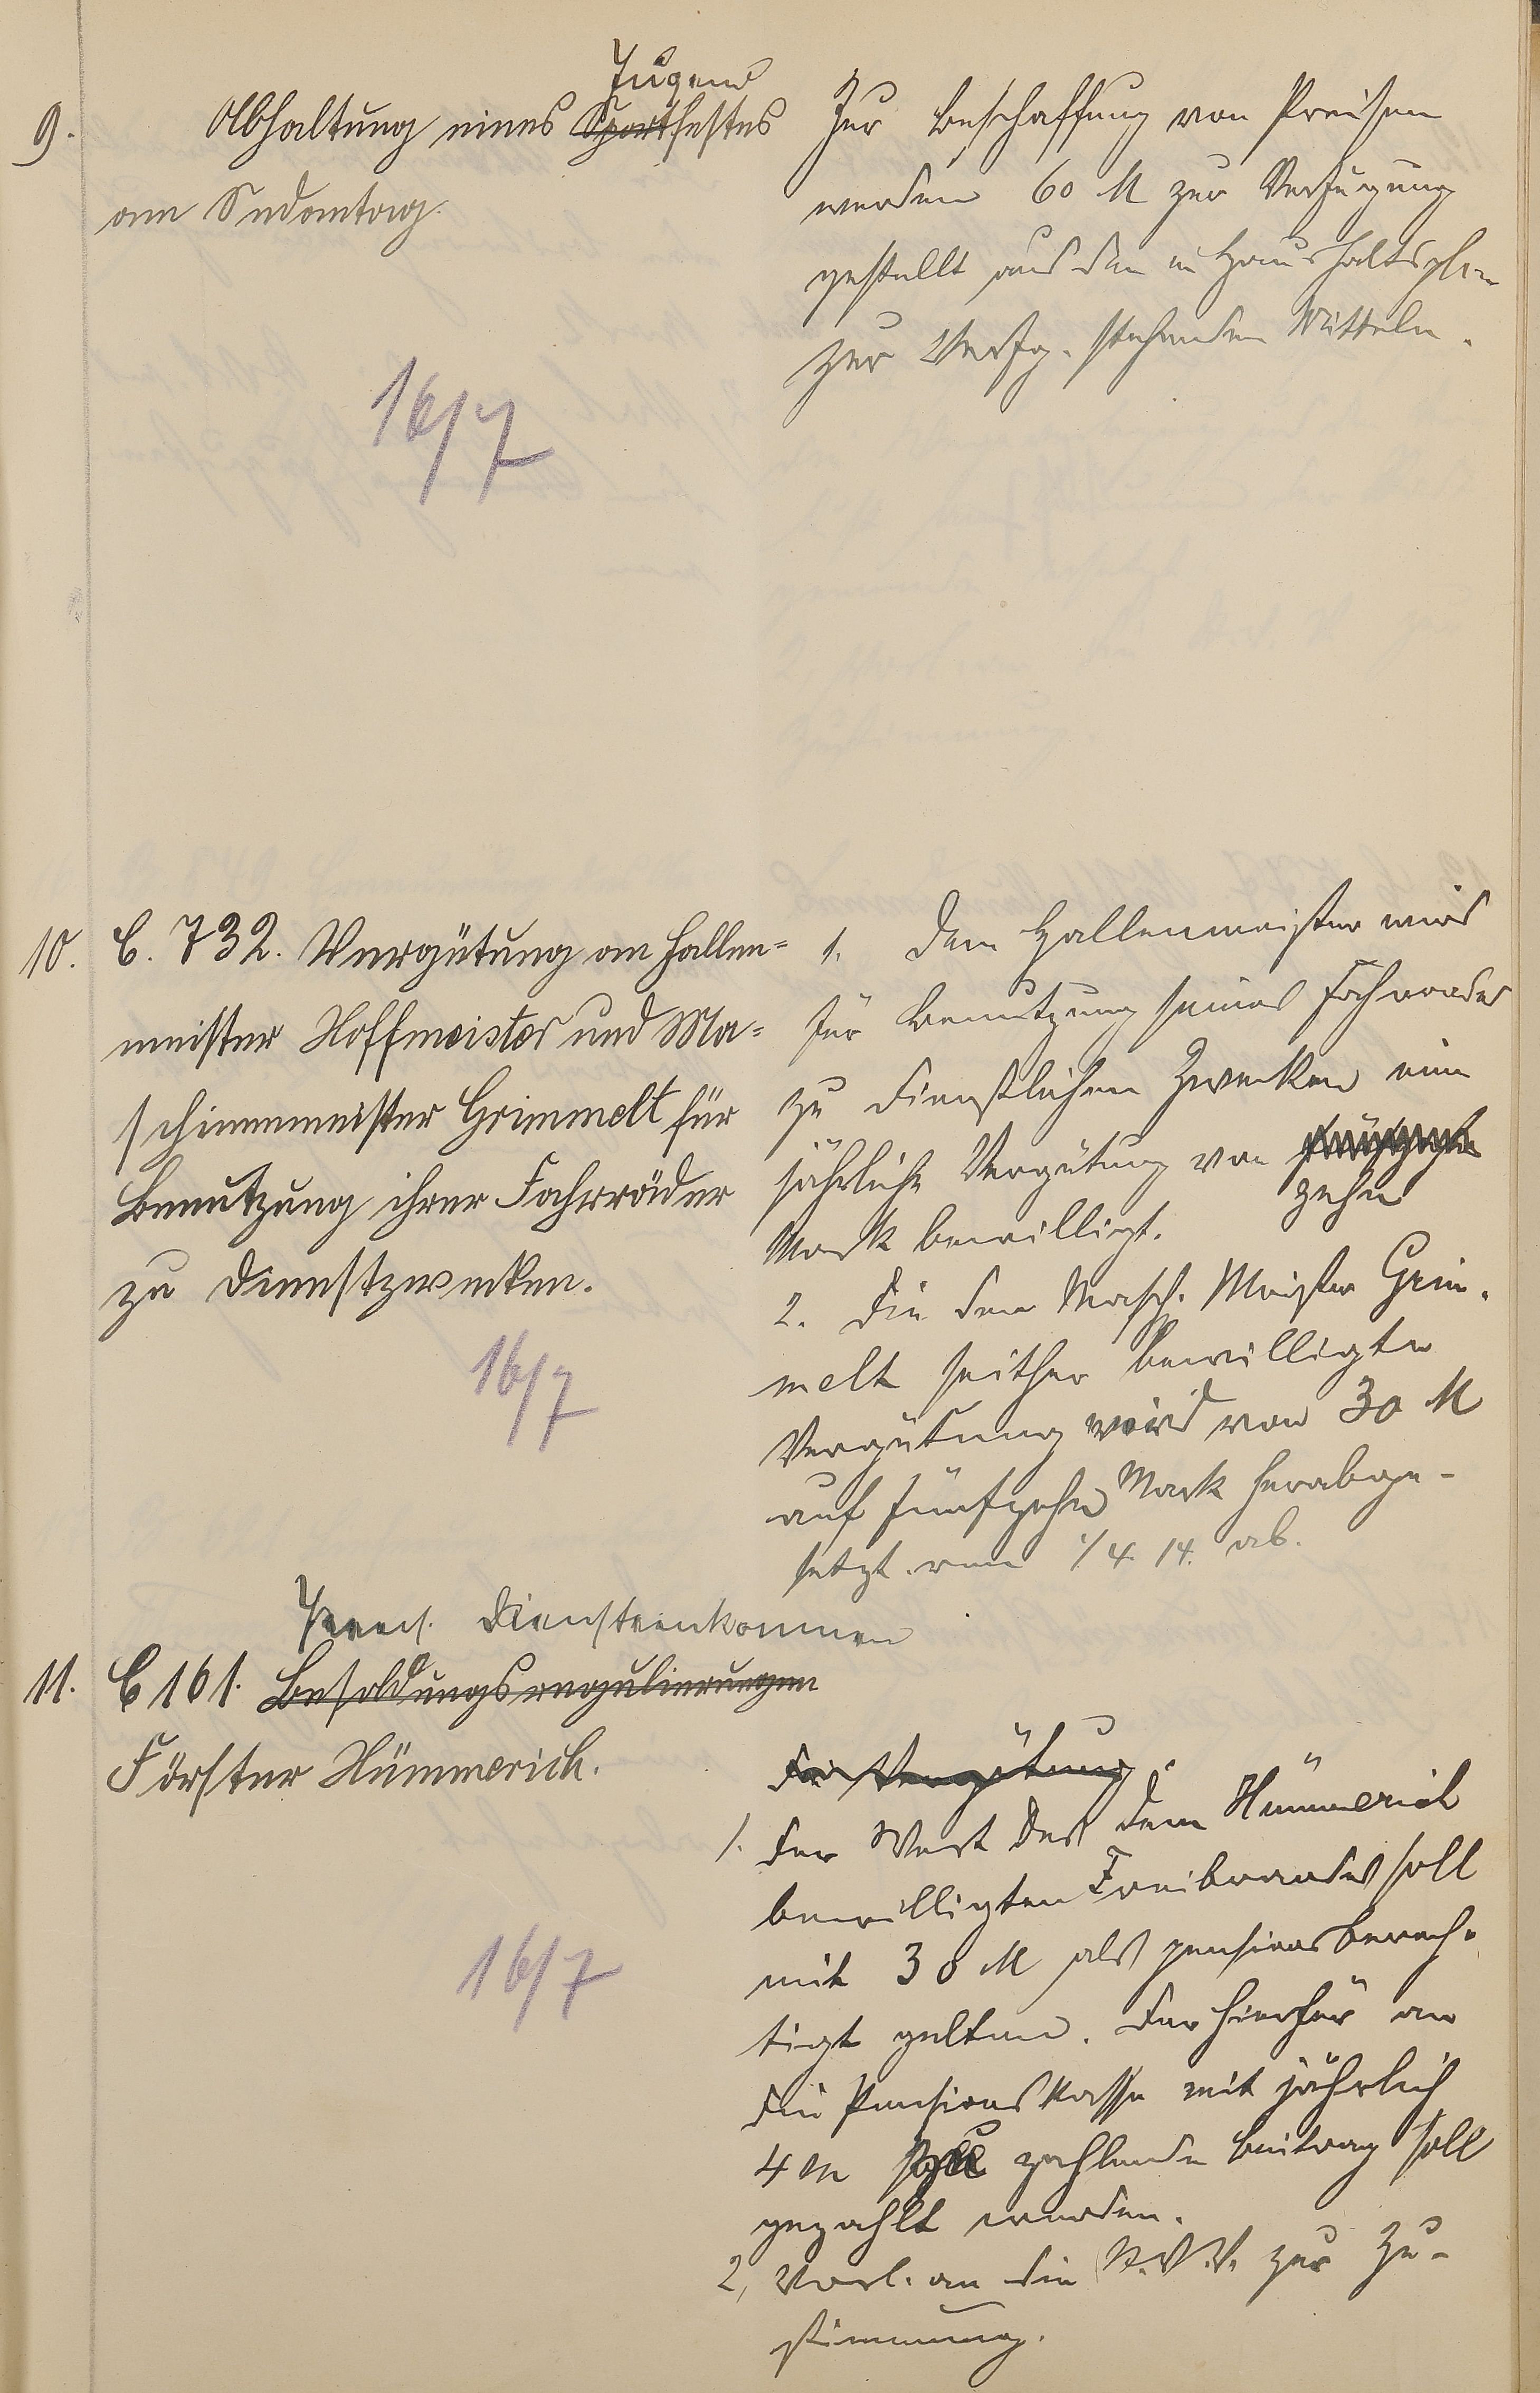 Jugend
9. Abhaltung eines Sportfestes
am Sedantag.
Zur Beschaffung von Preisen
werden 60 M zur Verfügung
gestellt aus den im Haushaltsplan
zur Verfg. stehenden Mitteln.
16/7
10. C. 732. Vergütung an Hallen=
meister Hoffmeister und Ma=
schinenmeister Grimmelt für
Benutzung ihrer Fahrräder
zu Dienstzwecken.
16/7
1. Dem Hallenmeister wird
für Benutzung seines Fahrrades
zu dienstlichen Zwecken eine
jährliche Vergütung von fünfzehn
zehn
Mark bewilligt.
2. Die dem Masch. Meister Grim-
melt seither bewilligte
Vergütung wird von 30 M
auf fünfzehn Mark herabge-
setzt vom 1/4 14. ab.
Pens. Diensteinkommen
11. C 161. Besoldungsregulierungen
Förster Hümmerich.
16/7
Die Vergütung
1. Der Wert des dem Hümmerich
bewilligten Freibrandes soll
mit 30 M als pensionsberech-
tigt gelten. Der hierfür an
die Pensionskasse mit jährlich
4 M zu zahlende Beitrag soll
gezahlt werden.
2, Vorl. an die St.V.V. zur Zu-
stimmung.